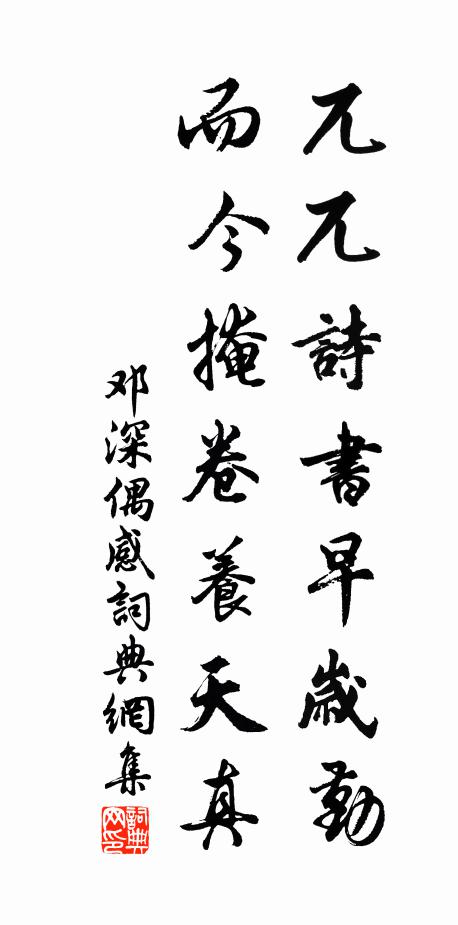 兀兀詩書早歲勤
而今掩卷養天真
邓深偶感詞典網集
詞典网印